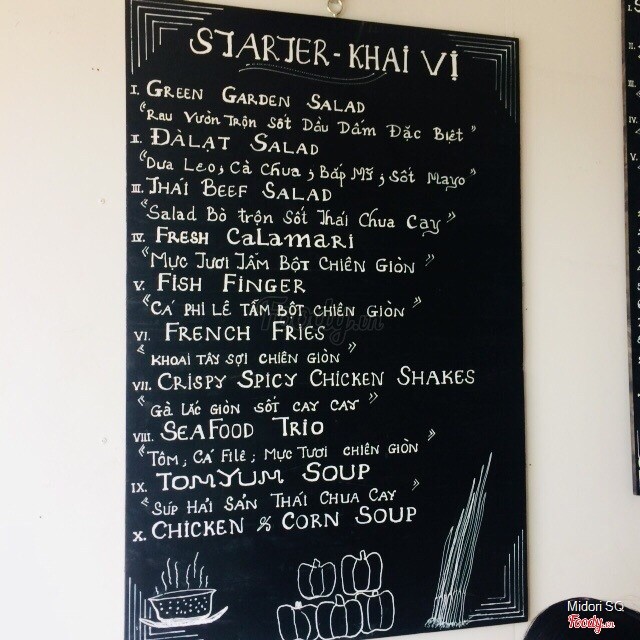 STARTER - KHAI VỊ
I. GREEN GARDEN SALAD
"Rau Vườn Trộn Sốt Dầu Dấm Đặc Biệt"
II. ĐÀLẠT SALAD
"Dưa Leo, Cà Chua, Bắp Mỹ, Sốt Mayo"
III. THAI BEEF SALAD
"Salad Bò trộn Sốt Thái Chua Cay"
IV. FRESH CaLamari
"MỰC TƯƠI TẨM BỘT CHIÊN GIÒN"
V. FISH FINGER
"CÁ PHI LÊ TẨM BỘT CHIÊN GIÒN"
VI. FRENCH FRIES
"KHOAI TÂY SỢI CHIÊN GIÒN"
VII. CRISPY SPICY CHICKEN SHAKES
"GÀ LẮC GIÒN SỐT CAY CAY"
VIII. SEAFOOD TRIO
"TÔM, CÁ FILÊ, MỰC TƯƠI CHIÊN GIÒN"
IX. TOMYUM SOUP
"SÚP HẢI SẢN THÁI CHUA CAY"
X. CHICKEN & CORN SOUP
Foody.vn
Midori SQ
Foody.vn